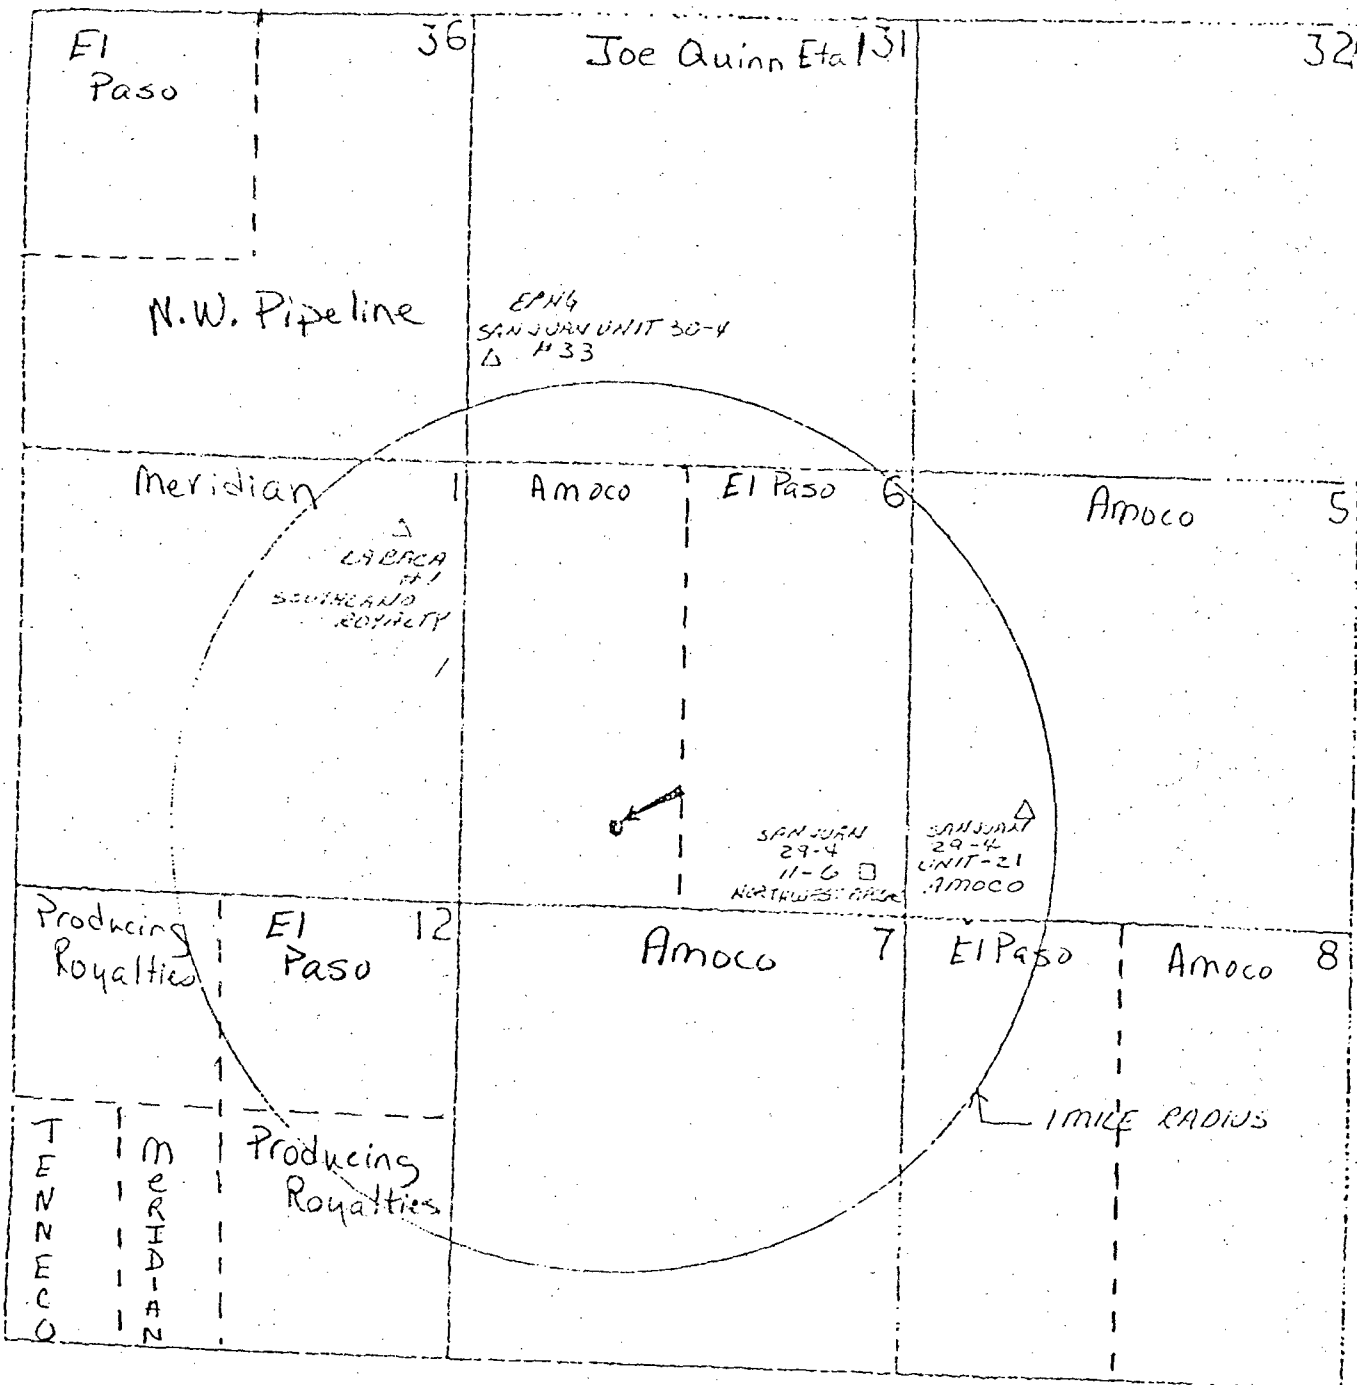 El
Paso
36
Joe Quinn Etal
31
32
N.W. Pipeline
EPNG
SAN JUAN UNIT 30-4
#33
Meridian
1
Amoco
El Paso
6
Amoco
5
#1
SOUTHLAND
ROYALTY
SAN JUAN
29-4
11-6
NORTHWEST
SAN JUAN
29-4
UNIT-21
AMOCO
Producing
Royalties
El
Paso
12
Amoco
7
El Paso
Amoco
8
1 MILE RADIUS
TENNECO
MERIDIAN
Producing
Royalties